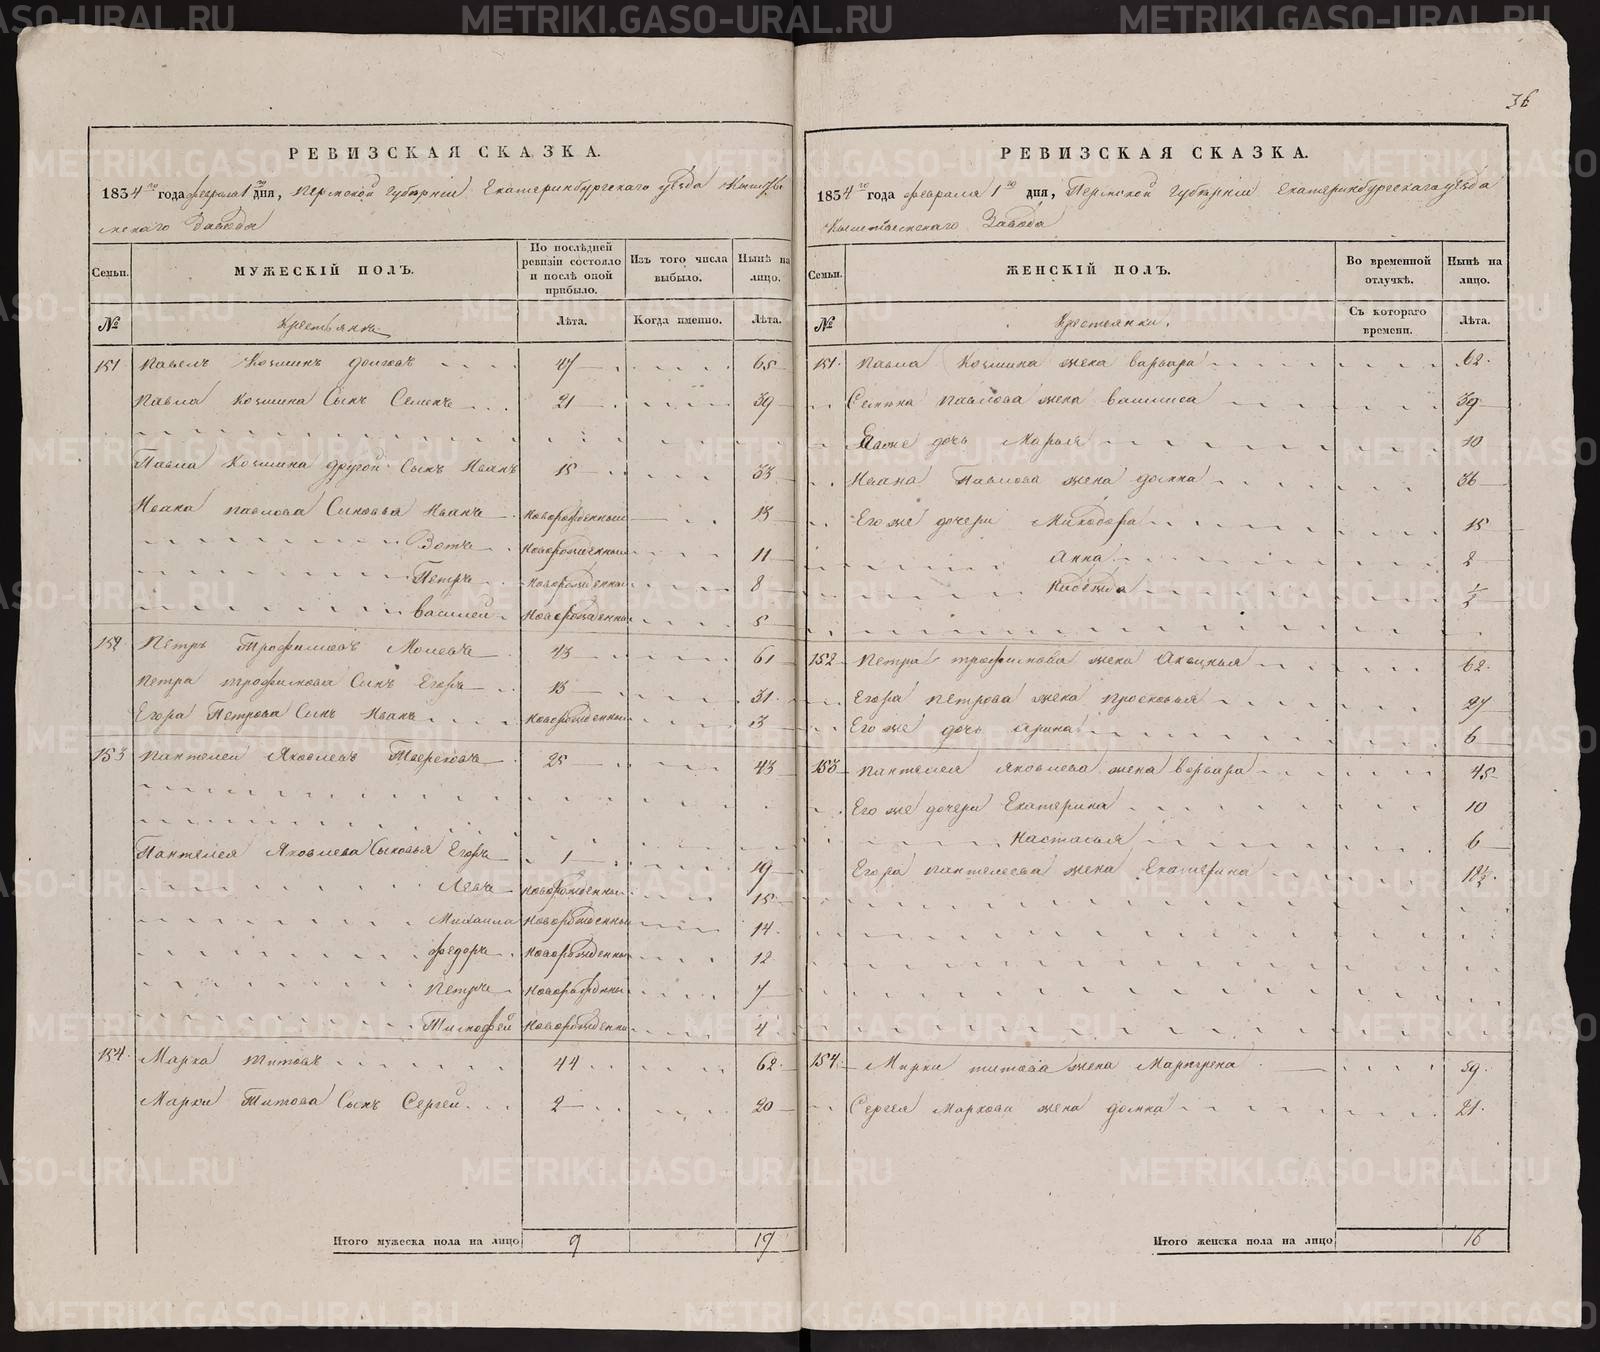 36
РЕВИЗСКАЯ СКАЗКА.
1834 го года февраля 1 го дня, Пермской Губерніи Екатеринбургскаго уѣзда Кыштым
скаго Завода
Семьи.
МУЖЕСКІЙ ПОЛЪ.
По послѣдней ревизіи состояло и послѣ оной прибыло.
Изъ того числа выбыло.
Нынѣ на лицо.
№
Крестьяне
Лѣта.
Когда именно.
Лѣта.
151 Павелъ Козминъ 47 65
Павла Козмина Сынъ Семенъ 21 39
Павла Козмина другой Сынъ Иванъ 15 33
Ивана Павлова Сыновья Иванъ новорожденный 13
Зотъ новорожденный 11
Петръ новорожденный 8
Василей новорожденный 5
152 Петръ Трофимовъ 43 61
Петра трофимова Сынъ Егоръ 13 31
Егора Петрова Сынъ Иванъ новорожденный 3
153 Пантелей Яковлевъ 25 43
Пантелея Яковлева Сыновья Егоръ 1 19
Левъ новорожденный 15
Михаила новорожденный 14
Федоръ новорожденный 12
Петръ новорожденный 7
Тимофей новорожденный 4
154 Марка титовъ 44 62
Марка Титова Сынъ Сергей 2 20
Итого мужеска пола на лицо 9 19
РЕВИЗСКАЯ СКАЗКА.
1834 го года февраля 1 го дня, Пермской Губерніи Екатеринбургскаго уѣзда
Кыштымскаго Завода
Семьи.
ЖЕНСКІЙ ПОЛЪ.
Во временной отлучкѣ.
Нынѣ на лицо.
№
Крестьянки.
Съ котораго времени.
Лѣта.
151 Павла Козмина жена варвара 62
Семена Павлова жена василиса 39
Егоже дочь Марья 10
Ивана Павлова жена домна 36
Его же дочери 15
Анна 2
Надежда 1/2
152 Петра трофимова жена 62
Егора Петрова жена просковья 27
Его же дочь арина 6
153 пантелея яковлева жена варвара 45
Его же дочери Екатерина 10
Настасья 6
Егора пантелеева жена Екатерина 18 1/2
154 Марки титова жена 59
Сергея Маркова жена домна 21
Итого женска пола на лицо 16
METRIKI.GASO-URAL.RU